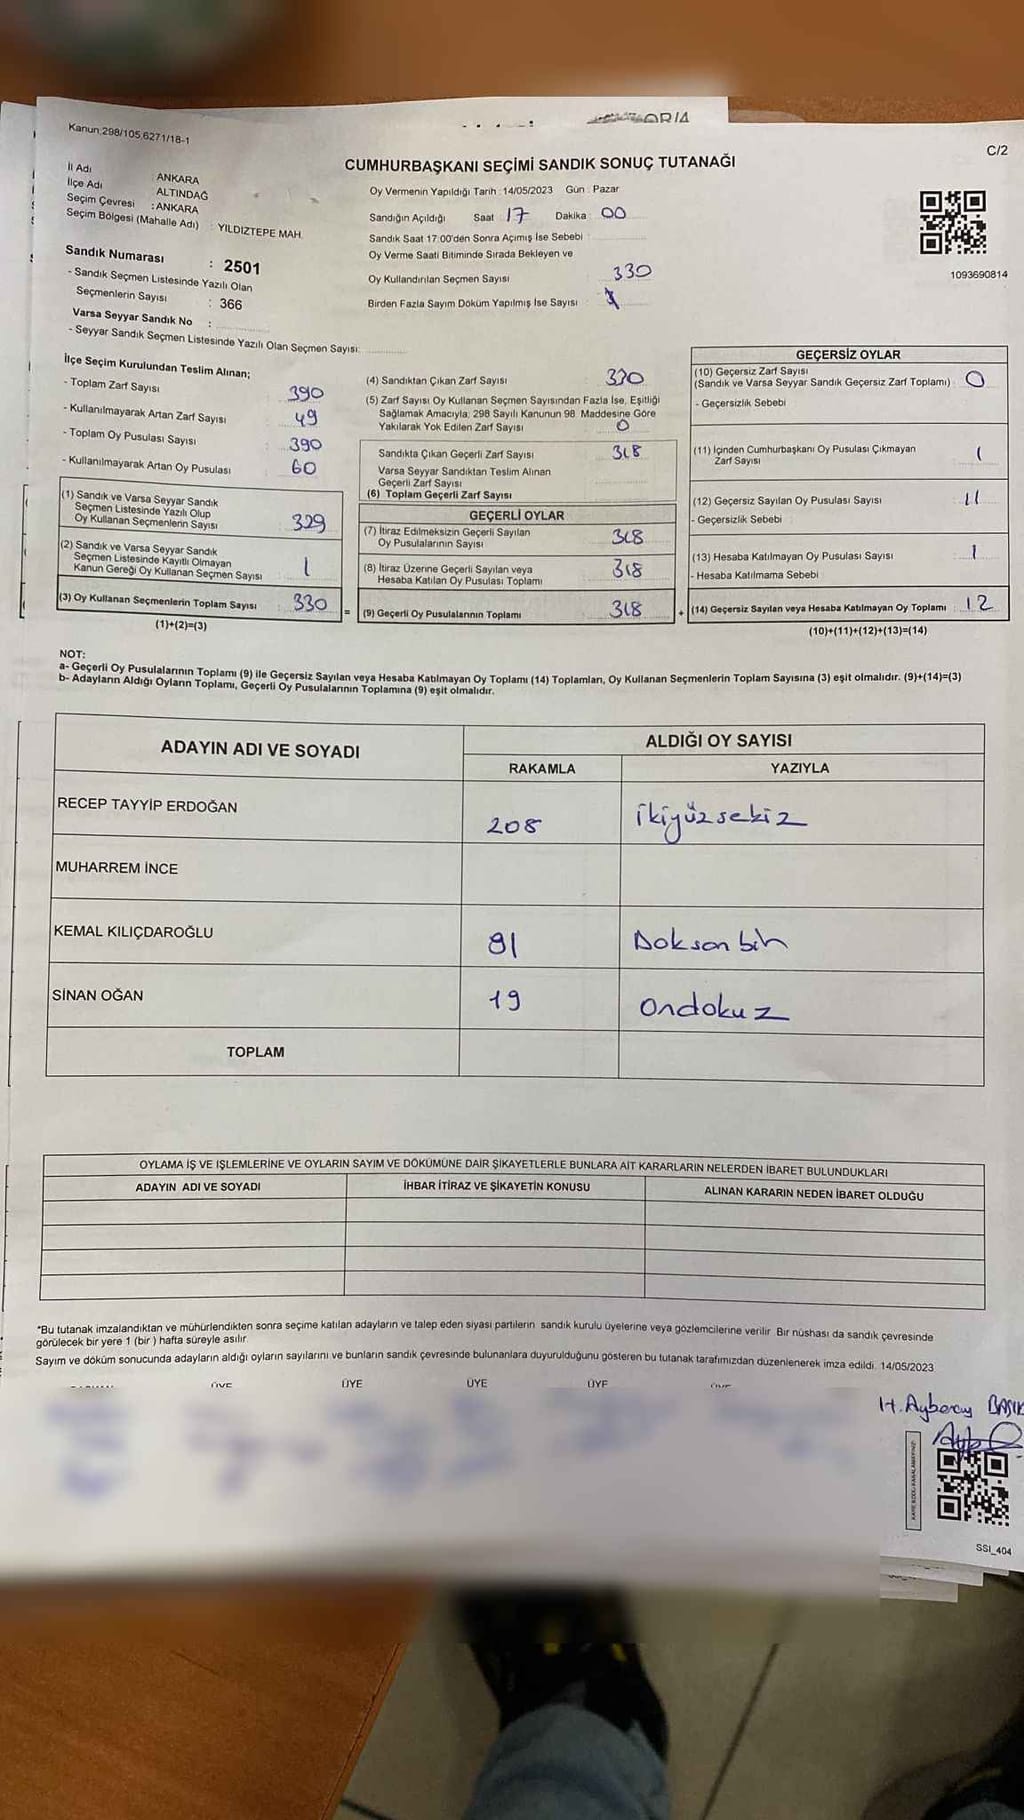 Kanun:298/105,6271/18-1
C/2
CUMHURBAŞKANI SEÇİMİ SANDIK SONUÇ TUTANAĞI
İl Adı ANKARA
İlçe Adı ALTINDAĞ
Seçim Çevresi : ANKARA
Seçim Bölgesi (Mahalle Adı) : YILDIZTEPE MAH.
Sandık Numarası : 2501
- Sandık Seçmen Listesinde Yazılı Olan
Seçmenlerin Sayısı : 366
Varsa Seyyar Sandık No :
- Seyyar Sandık Seçmen Listesinde Yazılı Olan Seçmen Sayısı:
Oy Vermenin Yapıldığı Tarih : 14/05/2023 Gün : Pazar
Sandığın Açıldığı Saat 17 Dakika 00
Sandık Saat 17:00'den Sonra Açımış İse Sebebi :
Oy Verme Saati Bitiminde Sırada Bekleyen ve
Oy Kullandırılan Seçmen Sayısı 330
Birden Fazla Sayım Döküm Yapılmış İse Sayısı :
1093690814
İlçe Seçim Kurulundan Teslim Alınan;
- Toplam Zarf Sayısı 390
- Kullanılmayarak Artan Zarf Sayısı 49
- Toplam Oy Pusulası Sayısı 390
- Kullanılmayarak Artan Oy Pusulası 60
(1) Sandık ve Varsa Seyyar Sandık
Seçmen Listesinde Yazılı Olup
Oy Kullanan Seçmenlerin Sayısı 329
(2) Sandık ve Varsa Seyyar Sandık
Seçmen Listesinde Kayıtlı Olmayan
Kanun Gereği Oy Kullanan Seçmen Sayısı 1
(3) Oy Kullanan Seçmenlerin Toplam Sayısı : 330 =
(1)+(2)=(3)
(4) Sandıktan Çıkan Zarf Sayısı 330
(5) Zarf Sayısı Oy Kullanan Seçmen Sayısından Fazla İse, Eşitliği
Sağlamak Amacıyla; 298 Sayılı Kanunun 98. Maddesine Göre
Yakılarak Yok Edilen Zarf Sayısı 0
Sandıkta Çıkan Geçerli Zarf Sayısı 318
Varsa Seyyar Sandıktan Teslim Alınan
Geçerli Zarf Sayısı
(6) Toplam Geçerli Zarf Sayısı
GEÇERLİ OYLAR
(7) İtiraz Edilmeksizin Geçerli Sayılan
Oy Pusulalarının Sayısı 318
(8) İtiraz Üzerine Geçerli Sayılan veya
Hesaba Katılan Oy Pusulası Toplamı 318
(9) Geçerli Oy Pusulalarının Toplamı 318 +
GEÇERSİZ OYLAR
(10) Geçersiz Zarf Sayısı
(Sandık ve Varsa Seyyar Sandık Geçersiz Zarf Toplamı) : 0
- Geçersizlik Sebebi
(11) İçinden Cumhurbaşkanı Oy Pusulası Çıkmayan
Zarf Sayısı 1
(12) Geçersiz Sayılan Oy Pusulası Sayısı 11
- Geçersizlik Sebebi
(13) Hesaba Katılmayan Oy Pusulası Sayısı 1
- Hesaba Katılmama Sebebi
(14) Geçersiz Sayılan veya Hesaba Katılmayan Oy Toplamı : 12
(10)+(11)+(12)+(13)=(14)
NOT:
a- Geçerli Oy Pusulalarının Toplamı (9) ile Geçersiz Sayılan veya Hesaba Katılmayan Oy Toplamı (14) Toplamları, Oy Kullanan Seçmenlerin Toplam Sayısına (3) eşit olmalıdır. (9)+(14)=(3)
b- Adayların Aldığı Oyların Toplamı, Geçerli Oy Pusulalarının Toplamına (9) eşit olmalıdır.
ADAYIN ADI VE SOYADI ALDIĞI OY SAYISI
RAKAMLA YAZIYLA
RECEP TAYYİP ERDOĞAN 208 ikiyüzsekiz
MUHARREM İNCE
KEMAL KILIÇDAROĞLU 91 Doksan bir
SİNAN OĞAN 19 ondokuz
TOPLAM
OYLAMA İŞ VE İŞLEMLERİNE VE OYLARIN SAYIM VE DÖKÜMÜNE DAİR ŞİKAYETLERLE BUNLARA AİT KARARLARIN NELERDEN İBARET BULUNDUKLARI
ADAYIN ADI VE SOYADI İHBAR İTİRAZ VE ŞİKAYETİN KONUSU ALINAN KARARIN NEDEN İBARET OLDUĞU
*Bu tutanak imzalandıktan ve mühürlendikten sonra seçime katılan adayların ve talep eden siyasi partilerin sandık kurulu üyelerine veya gözlemcilerine verilir. Bir nüshası da sandık çevresinde
görülecek bir yere 1 (bir ) hafta süreyle asılır.
Sayım ve döküm sonucunda adayların aldığı oyların sayılarını ve bunların sandık çevresinde bulunanlara duyurulduğunu gösteren bu tutanak tarafımızdan düzenlenerek imza edildi. 14/05/2023
ÜYE ÜYE ÜYE ÜYE
SSI_404